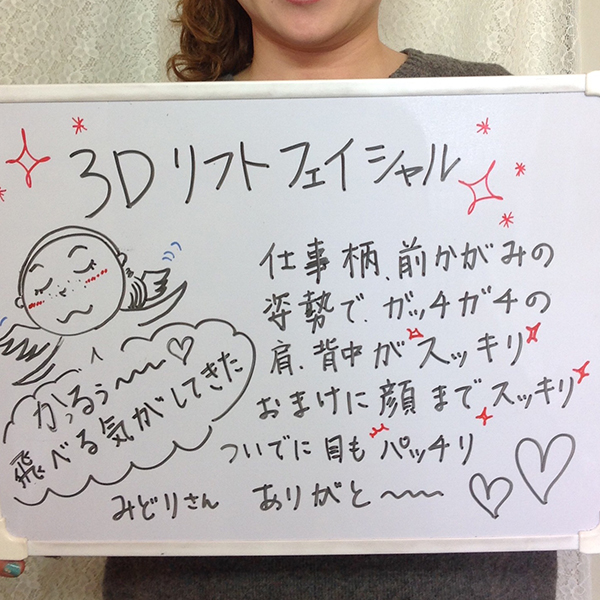 3Dリフトフェイシャル
仕事柄、前かがみの
姿勢で、ガッチガチの
肩、背中がスッキリ
おまけに顔までスッキリ
ついでに目もパッチリ
みどりさん ありがと〜〜
かっるぅ〜〜♡
飛べる気がしてきた